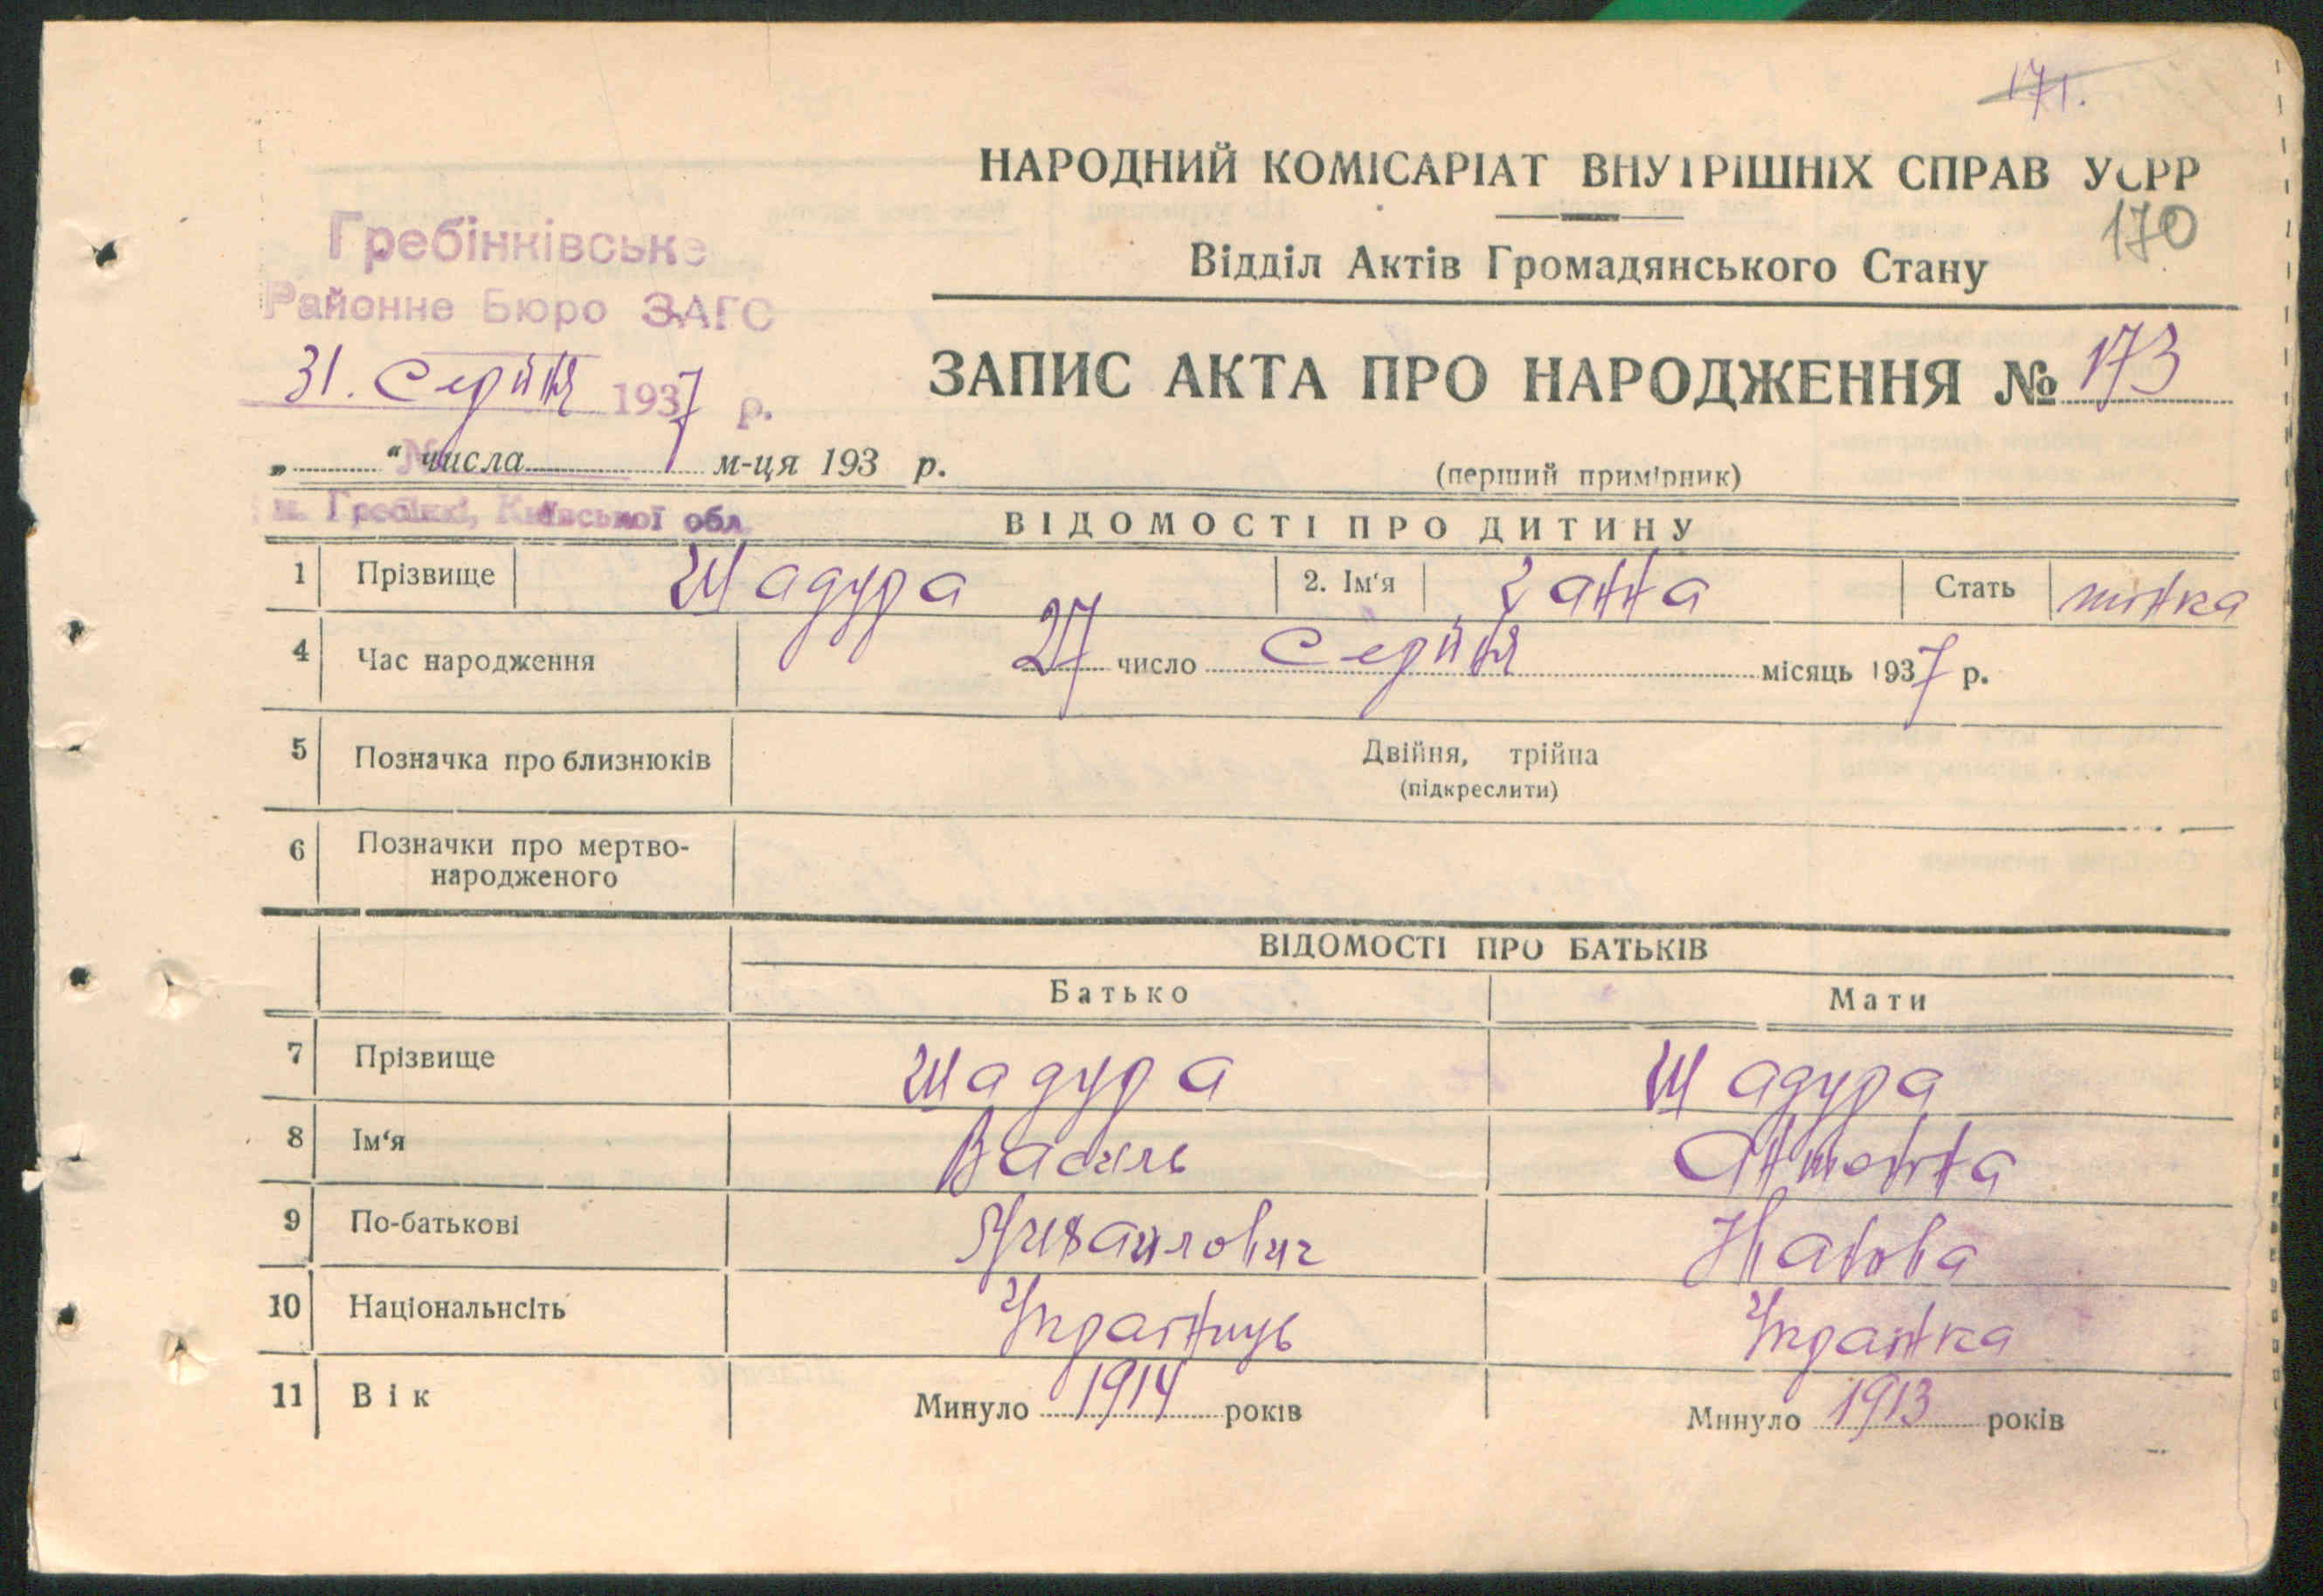 171.
НАРОДНИЙ КОМІСАРІАТ ВНУТРІШНІХ СПРАВ УСРР
170
Гребінківське
Відділ Актів Громадянського Стану
Районне Бюро ЗАГС
31. Серпня 1937 р.
ЗАПИС АКТА ПРО НАРОДЖЕННЯ № 173
№
„ “ числа м-ця 193 р.
(перший примірник)
м. Гребінкі, Київської обл
ВІДОМОСТІ ПРО ДИТИНУ
1 Прізвище Шадура 2. Ім‘я Ганна Стать жінка
4 Час народження 27 число Серпня місяць 1937 р.
5 Позначка про близнюків Двійня, трійна
(підкреслити)
6 Позначки про мертво-
народженого
ВІДОМОСТІ ПРО БАТЬКІВ
Батько Мати
7 Прізвище Шадура Шадура
8 Ім‘я Василь
9 По-батькові Михайлович
10 Національнсіть Українць Українка
11 Вік Минуло 1914 років Минуло 1913 років